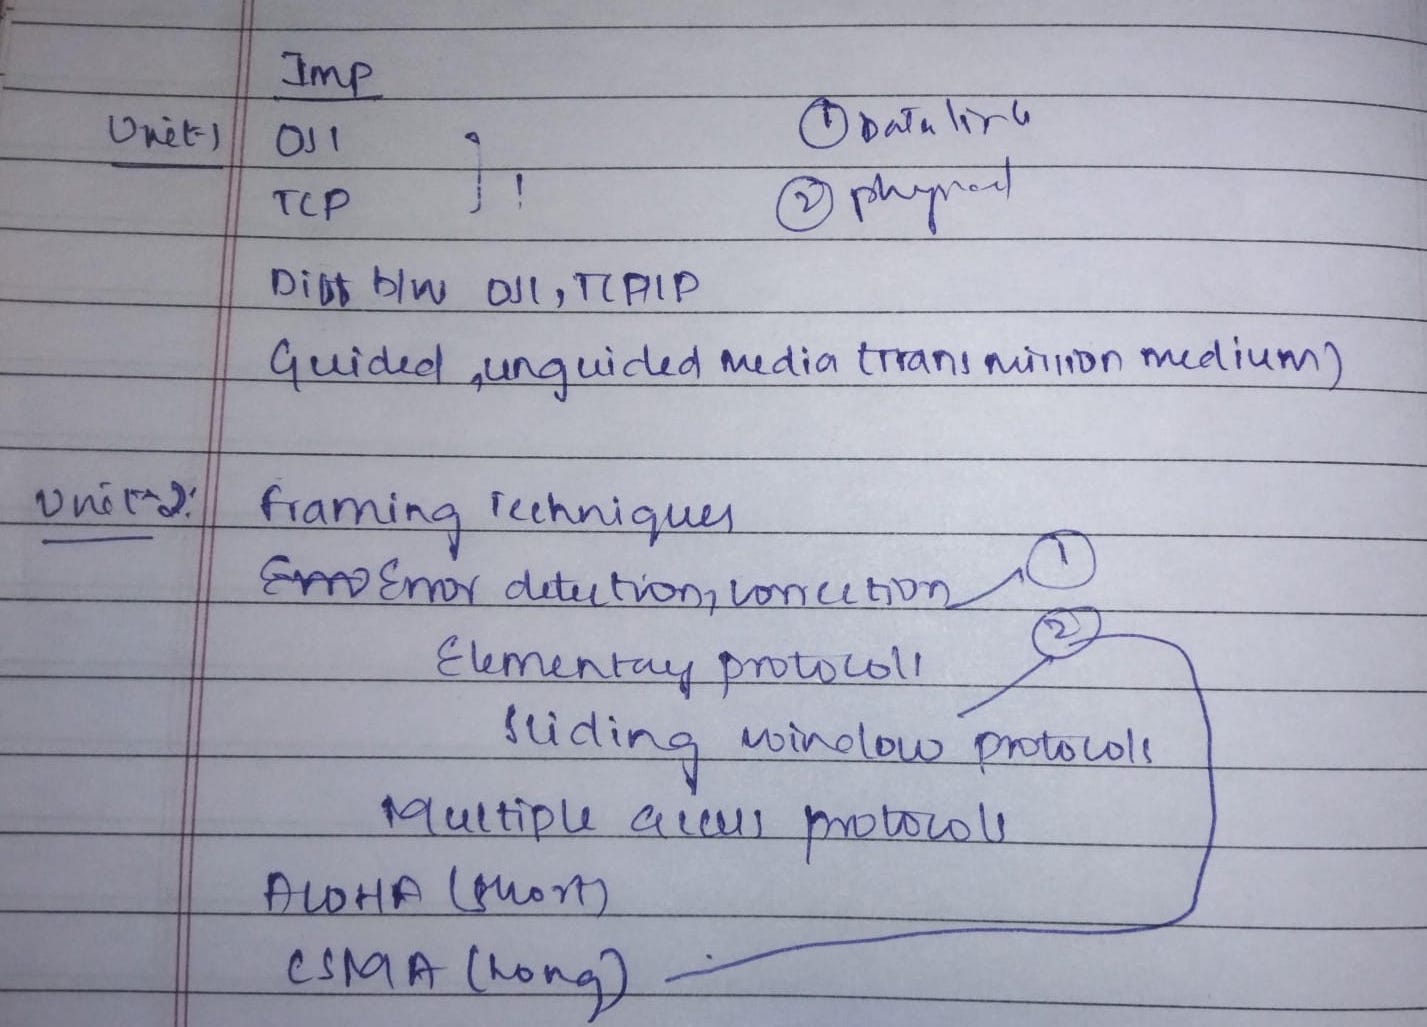 Imp
Unit-1 OSI ① Data link
TCP ! ② physical
Diff b/w OSI, TCP/IP
Guided, unguided media (transmission medium)
Unit-2: framing Techniques
Error detection, correction ①
Elementary protocols ②
Sliding window protocols
Multiple access protocols
ALOHA (short)
CSMA (Long)